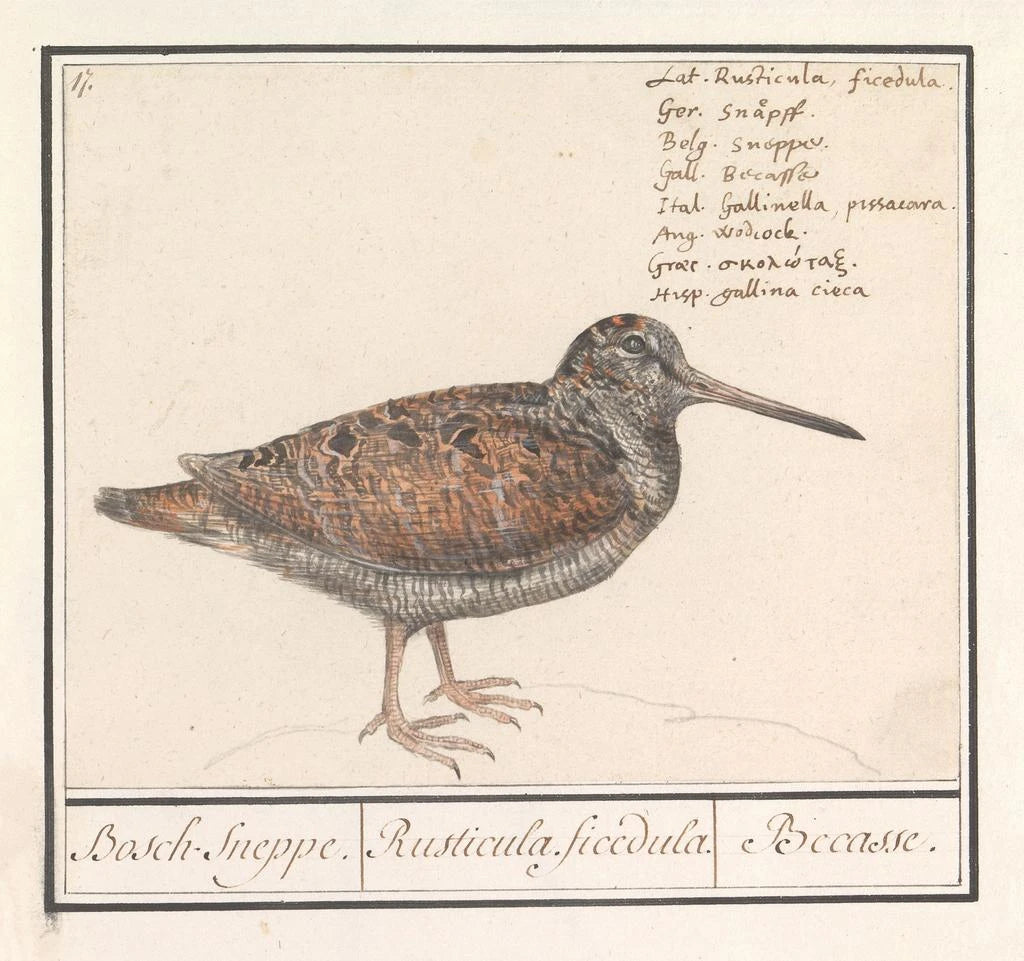 17.
Lat. Rusticula, ficedula.
Ger. Snåpff.
Belg. Sneppe.
Gall. Becasse
Ital. Gallinella, pissacara.
Ang. wodcock.
Græc. σκολώταξ.
Hisp. gallina cieca
Bosch-Sneppe. Rusticula.ficedula. Becasse.